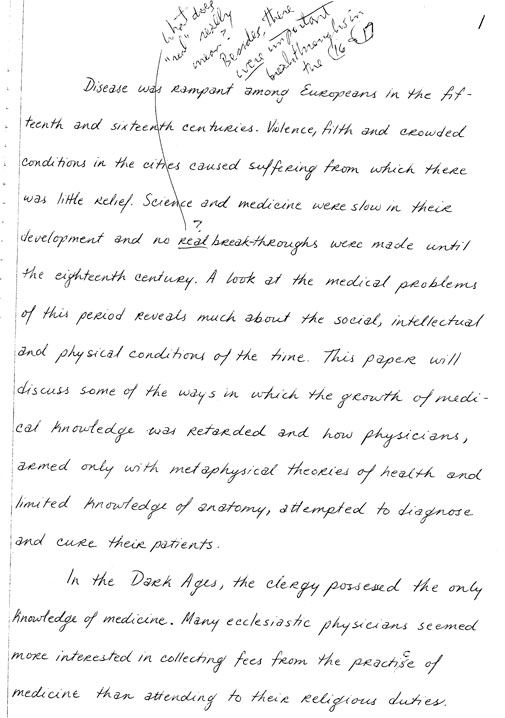 1
What does
"real" really
mean?
Besides, there
were important
breakthroughs in
the 16 & 17
Disease was rampant among Europeans in the fif-
teenth and sixteenth centuries. Violence, filth and crowded
conditions in the cities caused suffering from which there
was little relief. Science and medicine were slow in their
?
development and no real breakthroughs were made until
the eighteenth century. A look at the medical problems
of this period reveals much about the social, intellectual
and physical conditions of the time. This paper will
discuss some of the ways in which the growth of medi-
cal knowledge was retarded and how physicians,
armed only with metaphysical theories of health and
limited knowledge of anatomy, attempted to diagnose
and cure their patients.
In the Dark Ages, the clergy possessed the only
knowledge of medicine. Many ecclesiastic physicians seemed
c
more interested in collecting fees from the practise of
medicine than attending to their religious duties.